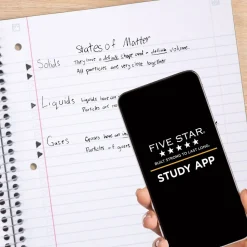 States of Matter
Solids
They have a definite shape and a definite volume.
All particles are very close together
Liquids
Liquids have
Particles
Gases
Gases have
Particles of
FIVE STAR.
BUILT STRONG TO LAST LONG.
STUDY APP